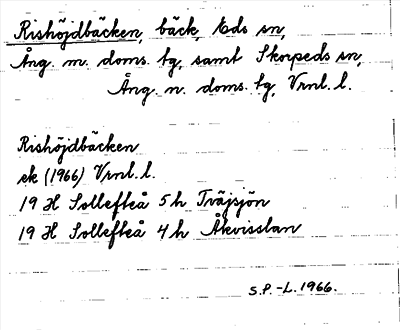 Rishöjdbäcken, bäck, Eds sn,
Ång. m. doms. tg, samt Skorpeds sn,
Ång. n. doms. tg, Vrnl. l.
Rishöjdbäcken
ek (1966) Vrnl. l.
19 H Sollefteå 5 h Träjsjön
19 H Sollefteå 4 h Åkvisslan
S.P.-L. 1966.